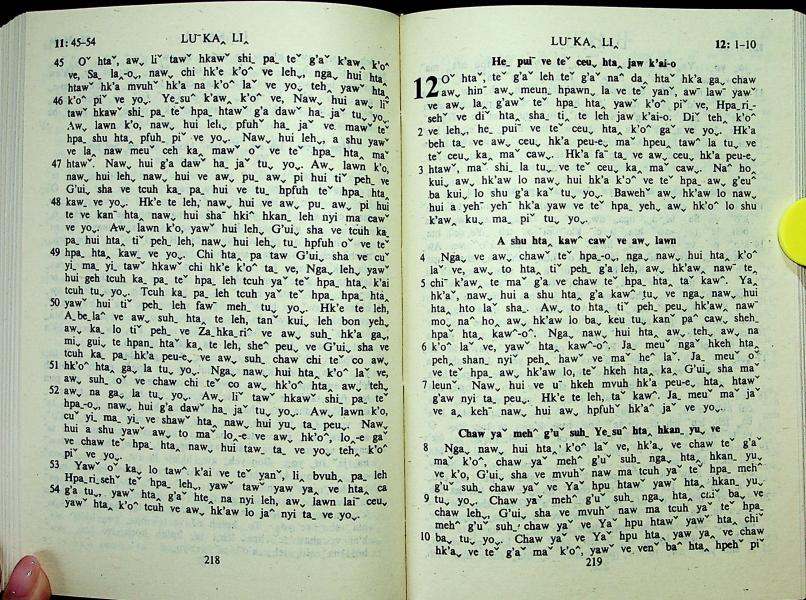 11: 45–54
LUˉ KAˬ LIˬ
45 Oˇ htaˇ, awˬ liˇ tawˇ hkawˇ shiˍ paˍ teˇ g'aˇ k'awˬ k'oˆ
ve, Saˍ laˬ-oˬ, nawˬ chi hk'e k'oˆ ve lehˬ, ngaˬ hui htaˬ
htawˇ hk'a mvuhˇ hk'a naˍ k'oˆ laˇ ve yoˬ tehˬ yawˇ htaˬ
46 k'oˆ piˇ ve yoˬ. Yeˍsuˆ k'awˬ k'oˆ ve, Nawˬ hui awˬ liˇ
tawˇ hkawˇ shiˍ paˍ teˇ hpaˍ htawˇ g'aˇ dawˇ haˍ jaˇ tuˬ yoˬ.
Awˬ lawn k'o, nawˬ hui lehˬ, pfuhˇ haˍ jaˇ ve mawˇ teˇ
hpaˍ shu htaˬ pfuhˍ piˇ ve yoˬ. Nawˬ hui lehˬ, a shu yawˇ
ve laˬ naw meuˇ ceh kaˍ mawˇ oˇ ve teˇ hpaˍ htaˬ maˇ
47 htawˇ. Nawˬ hui g'aˇ dawˇ haˍ jaˇ tuˬ yoˬ. Awˬ lawn k'o,
nawˬ hui leh nawˬ hui ve awˬ puˍ awˬ pi hui tiˇ pehˍ ve
G'uiˬ sha ve tcuh kaˍ paˍ hui ve tuˍ hpfuh teˇ hpaˍ htaˬ
48 kawˍ ve yoˬ. Hk'e te leh, nawˬ hui ve awˬ puˍ awˬ pi hui
te ve kanˆ htaˬ nawˬ hui shaˉ hkiˆ hkanˍ leh nyi ma caw
ve yoˬ. Awˬ lawn k'o, yawˇ hui leh, G'uiˬ sha ve tcuh kaˍ
paˍ hui htaˬ tiˇ pehˍ leh, nawˬ hui lehˬ tuˍ hpfuh oˇ ve teˇ
49 hpaˍ htaˬ kawˍ ve yoˬ. Chi htaˬ paˍ taw G'uiˬ sha ve cuˇ
yiˍ maˍ yiˬ tawˇ hkawˇ chi hk'e k'oˆ taˍ ve, Ngaˬ leh yawˇ
hui geh tcuh kaˍ paˍ teˇ hpaˍ leh tcuh yaˇ teˇ hpaˍ htaˬ k'ai
tcuh tuˬ yoˬ. Tcuh kaˍ paˍ leh tcuh yaˇ teˇ hpaˍ hpaˍ htaˬ
50 yawˇ hui tiˇ pehˍ leh fawˇ mehˍ tuˬ yoˬ. Hk'e te leh,
Aˍbeˍlaˆ ve awˬ suhˍ htaˬ te leh, tanˇ kuiˬ leh bon yehˬ
awˬ kaˍ lo tiˇ pehˍ ve Zaˍhkaˍriˆ ve awˬ suhˍ hk'a gaˬ,
miˬ guiˬ te hpan htaˇ kaˬ te leh, sheˆ peuˬ ve G'uiˬ sha ve
tcuh kaˍ paˍ hk'a peu-e, ve awˬ suhˍ chaw chi teˇ co awˬ
51 hk'oˆ htaˬ gaˬ la tuˬ yoˬ. Ngaˬ nawˬ hui htaˬ k'oˆ laˇ ve,
awˬ suhˍ oˇ ve chaw chi teˇ co awˬ hk'oˆ htaˬ awˬ tehˬ
52 awˬ naˍ gaˬ la tuˬ yoˬ. Awˬ liˇ tawˇ hkawˇ shiˍ paˍ teˇ
hpaˍ-oˬ, nawˬ hui g'aˇ dawˇ haˍ jaˇ tuˬ yoˬ. Awˬ lawn k'o,
cuˇ yiˍ maˍ yiˬ ve shawˇ htaˬ nawˬ hui yuˬ taˍ peuˬ. Nawˬ
hui a shu yawˇ awˬ to maˇ loˬ-e ve awˬ hk'oˆ, loˬ-e gaˇ
ve chaw teˇ hpaˍ htaˬ nawˬ hui tawˬ taˍ ve yoˬ, tehˬ k'oˆ
piˇ ve yoˬ.
53 Yawˇ oˇ kaˬ lo tawˆ k'ai ve teˇ yanˇ, liˬ bvuhˬ paˍ leh
Hpaˍriˍsehˇ teˇ hpaˍ lehˬ, yawˇ tawˇ yaw yaˬ ve htaˬ ca
54 g'a tuˬ, yawˇ htaˬ g'aˇ hteˬ na nyi leh, awˬ lawn laiˉ ceuˬ
yawˇ htaˬ k'oˆ tcuh ve awˬ hk'aw lo jaˆ nyi taˍ ve yoˬ.
218
LUˉ KAˬ LIˬ
12: 1–10
Heˍ puiˉ ve teˇ ceuˬ htaˬ jaw k'ai-o
12 Oˇ htaˇ, teˇ g'aˇ leh teˇ g'aˇ naˆ daˬ htaˇ hk'a gaˬ chaw
awˬ hinˉ awˬ meunˍ hpawnˬ la ve teˇ yanˇ, awˬ lawˇ yawˇ
ve awˬ laˬ g'awˇ teˇ hpaˍ htaˬ yawˇ k'oˆ piˇ ve, Hpaˍriˍ-
sehˇ ve diˇ htaˬ sha tiˬ te leh jaw k'ai-o. Diˇ tehˬ k'oˆ
2 ve lehˬ, heˍ puiˉ ve teˇ ceuˬ htaˬ k'oˆ gaˇ ve yoˬ. Hk'a
beh taˍ ve awˬ ceuˬ hk'a peu-eˬ maˇ hpeuˬ tawˆ la tuˬ ve
teˇ ceuˬ kaˬ maˇ cawˬ. Hk'a faˇ taˍ ve awˬ ceuˬ hk'a peu-eˬ
3 htawˇ, maˇ shiˬ la tuˬ ve teˇ ceuˬ kaˬ maˇ cawˬ. Naˇ hoˬ
kuiˬ awˬ hk'aw lo nawˬ hui hk'a k'oˆ ve teˇ hpaˍ awˬ g'euˆ
ba kuiˬ lo shu g'a kaˇ tuˬ yoˬ. Bawehˇ awˬ hk'aw lo nawˬ
hui a yehˇ yehˉ hk'a yaw ve teˇ hpaˍ yehˬ awˬ hk'oˆ lo shu
k'awˬ kuˬ maˍ piˇ tuˬ yoˬ.
A shu htaˬ kawˆ cawˇ ve awˬ lawn
4 Ngaˬ ve awˬ chawˇ teˇ hpaˍ-oˬ, ngaˬ nawˬ hui htaˬ k'oˆ
laˇ ve, awˬ to htaˬ tiˇ pehˍ g'a leh, awˬ hk'awˬ nawˉ teˬ
5 chiˇ k'awˬ te maˇ g'a ve chaw teˇ hpaˍ htaˬ taˇ kawˇ. Yaˬ
hk'aˇ, nawˬ hui a shu htaˬ g'a kawˆ tuˬ ve ngaˬ nawˬ hui
htaˬ hto laˇ sha. Awˬ to htaˬ tiˇ pehˍ peuˬ hk'awˬ nawˉ
moˬ naˆ hoˬ awˬ hk'aw lo baˬ keu tuˬ kanˇ paˆ cawˬ shehˍ
hpaˇ htaˬ kawˆ-oˆ. Ngaˬ nawˬ hui htaˬ awˬ tehˬ awˬ na
6 k'oˆ laˇ ve, yawˇ htaˬ kawˆ-oˆ. Jaˍ meuˇ ngaˇ hkeh htaˬ
pehˬ shanˍ nyiˇ pehˬ hawˇ ve maˇ heˆ laˇ. Jaˍ meuˇ oˇ
ve teˇ hpaˍ awˬ hk'aw lo, teˇ hkeh htaˬ kaˬ G'uiˬ sha maˇ
7 leunˇ. Nawˬ hui ve uˉ hkeh mvuh hk'a peu-eˬ htaˬ htawˇ
g'aw nyi taˍ peuˬ. Hk'e te leh, taˇ kawˇ. Jaˍ meuˇ ma jaˇ
ve a kehˉ nawˬ hui awˬ hpfuhˇ hk'aˇ jaˇ ve yoˬ.
Chaw yaˇ mehˆ g'uˇ suhˍ Yeˍsuˆ htaˬ hkanˍ yuˬ ve
8 Ngaˬ nawˬ hui htaˬ k'oˆ laˇ ve, hk'aˬ ve chaw teˇ g'aˇ
maˇ k'oˆ, chaw yaˇ mehˆ g'uˇ suhˍ ngaˬ htaˬ hkanˍ yuˬ
ve k'o, G'uiˬ sha ve mvuhˇ naw ma tcuh yaˇ teˇ hpaˍ mehˆ
g'uˇ suhˍ chaw yaˇ ve Yaˇ hpu htawˇ yawˇ htaˬ hkanˍ yuˬ
9 tuˬ yoˬ. Chaw yaˇ mehˆ g'uˇ suhˍ ngaˬ htaˬ chi baˬ ve
chaw lehˬ, G'uiˬ sha ve mvuhˇ naw ma tcuh yaˇ teˇ hpaˍ
mehˆ g'uˇ suhˍ chaw yaˇ ve Yaˇ hpu htawˇ yawˇ htaˬ chi
10 baˬ tuˬ yoˬ. Chaw yaˇ ve Yaˇ hpu htaˬ yaw yaˬ ve chaw
hk'aˬ ve teˇ g'aˇ maˇ k'oˆ, yawˇ ve venˇ baˆ htaˬ hpehˇ piˇ
219